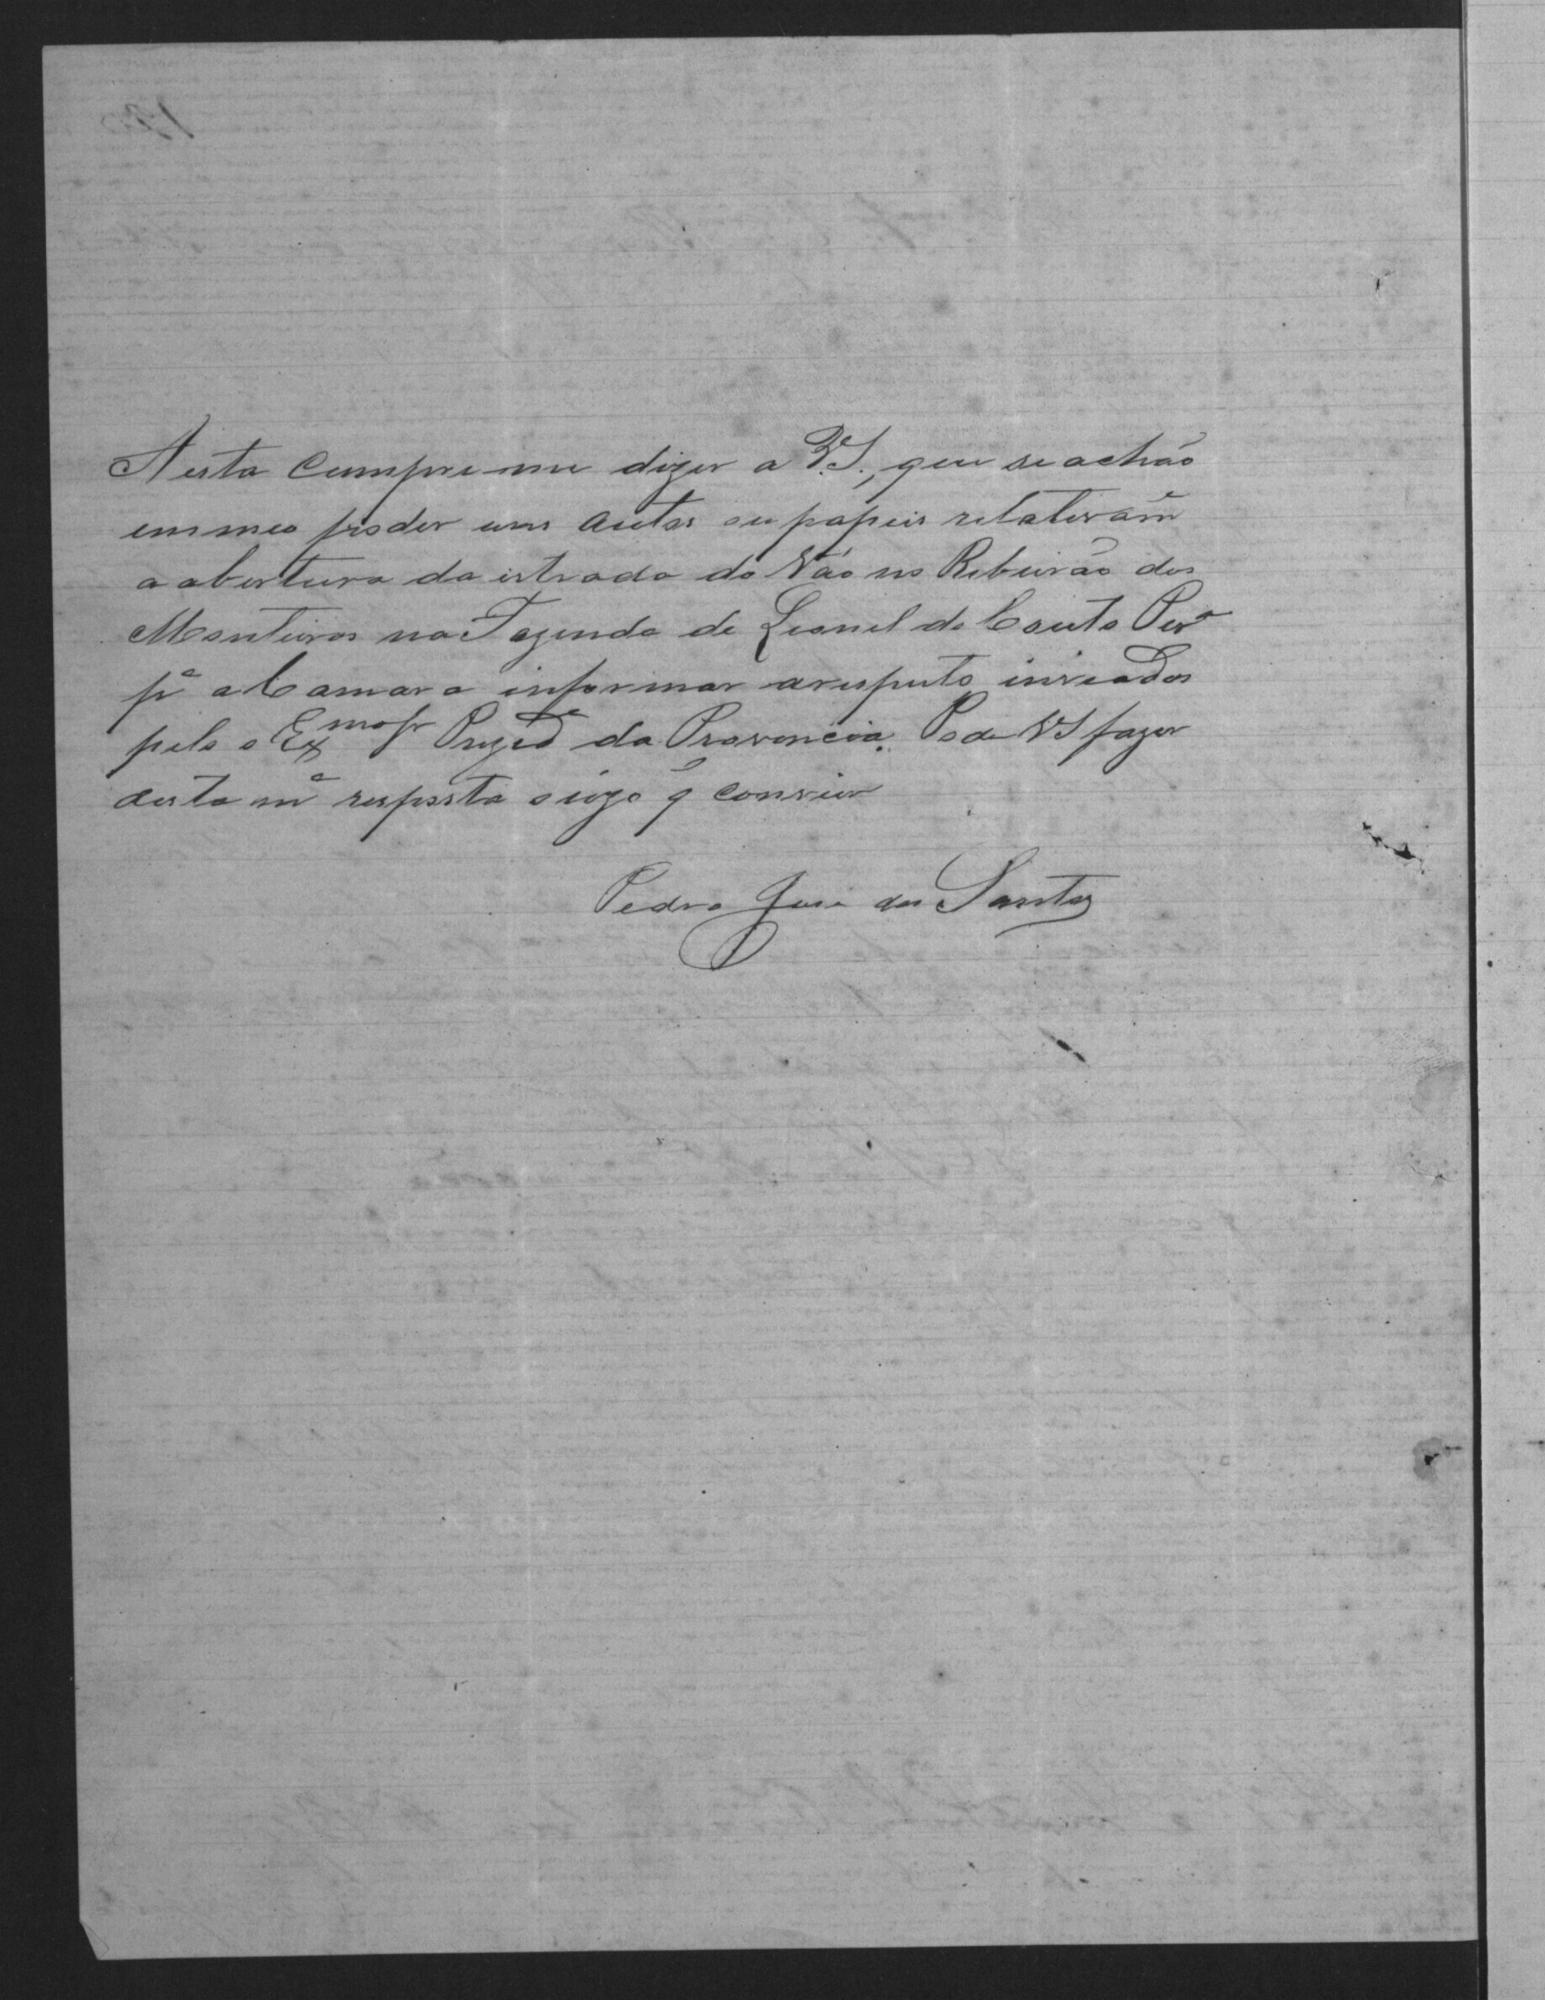 Nesta cumpre-me dizer a V.S.ª, que se achão
em meo poder uns autos ou papeis relativam.e
a abertura da estrada do Vão no Ribeirão dos
Monteiros na Fazenda de Leonel do Couto Per.a
p.a a Camara informar a respeito inviados
pelo o Ex.mo Sr Prezid.e da Provincia. Pode VS fazer
desta m.a resposta o uzo q̃ convier
Pedro Jose dos Santos